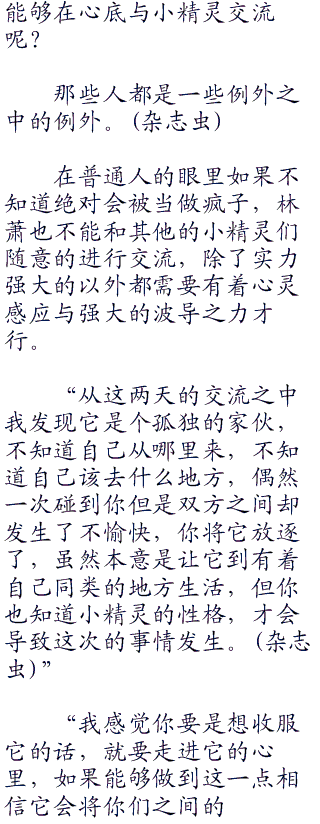 能够在心底与小精灵交流
呢？
那些人都是一些例外之
中的例外。(杂志虫)
在普通人的眼里如果不
知道绝对会被当做疯子，林
萧也不能和其他的小精灵们
随意的进行交流，除了实力
强大的以外都需要有着心灵
感应与强大的波导之力才
行。
“从这两天的交流之中
我发现它是个孤独的家伙，
不知道自己从哪里来，不知
道自己该去什么地方，偶然
一次碰到你但是双方之间却
发生了不愉快，你将它放逐
了，虽然本意是让它到有着
自己同类的地方生活，但你
也知道小精灵的性格，才会
导致这次的事情发生。(杂志
虫)”
“我感觉你要是想收服
它的话，就要走进它的心
里，如果能够做到这一点相
信它会将你们之间的